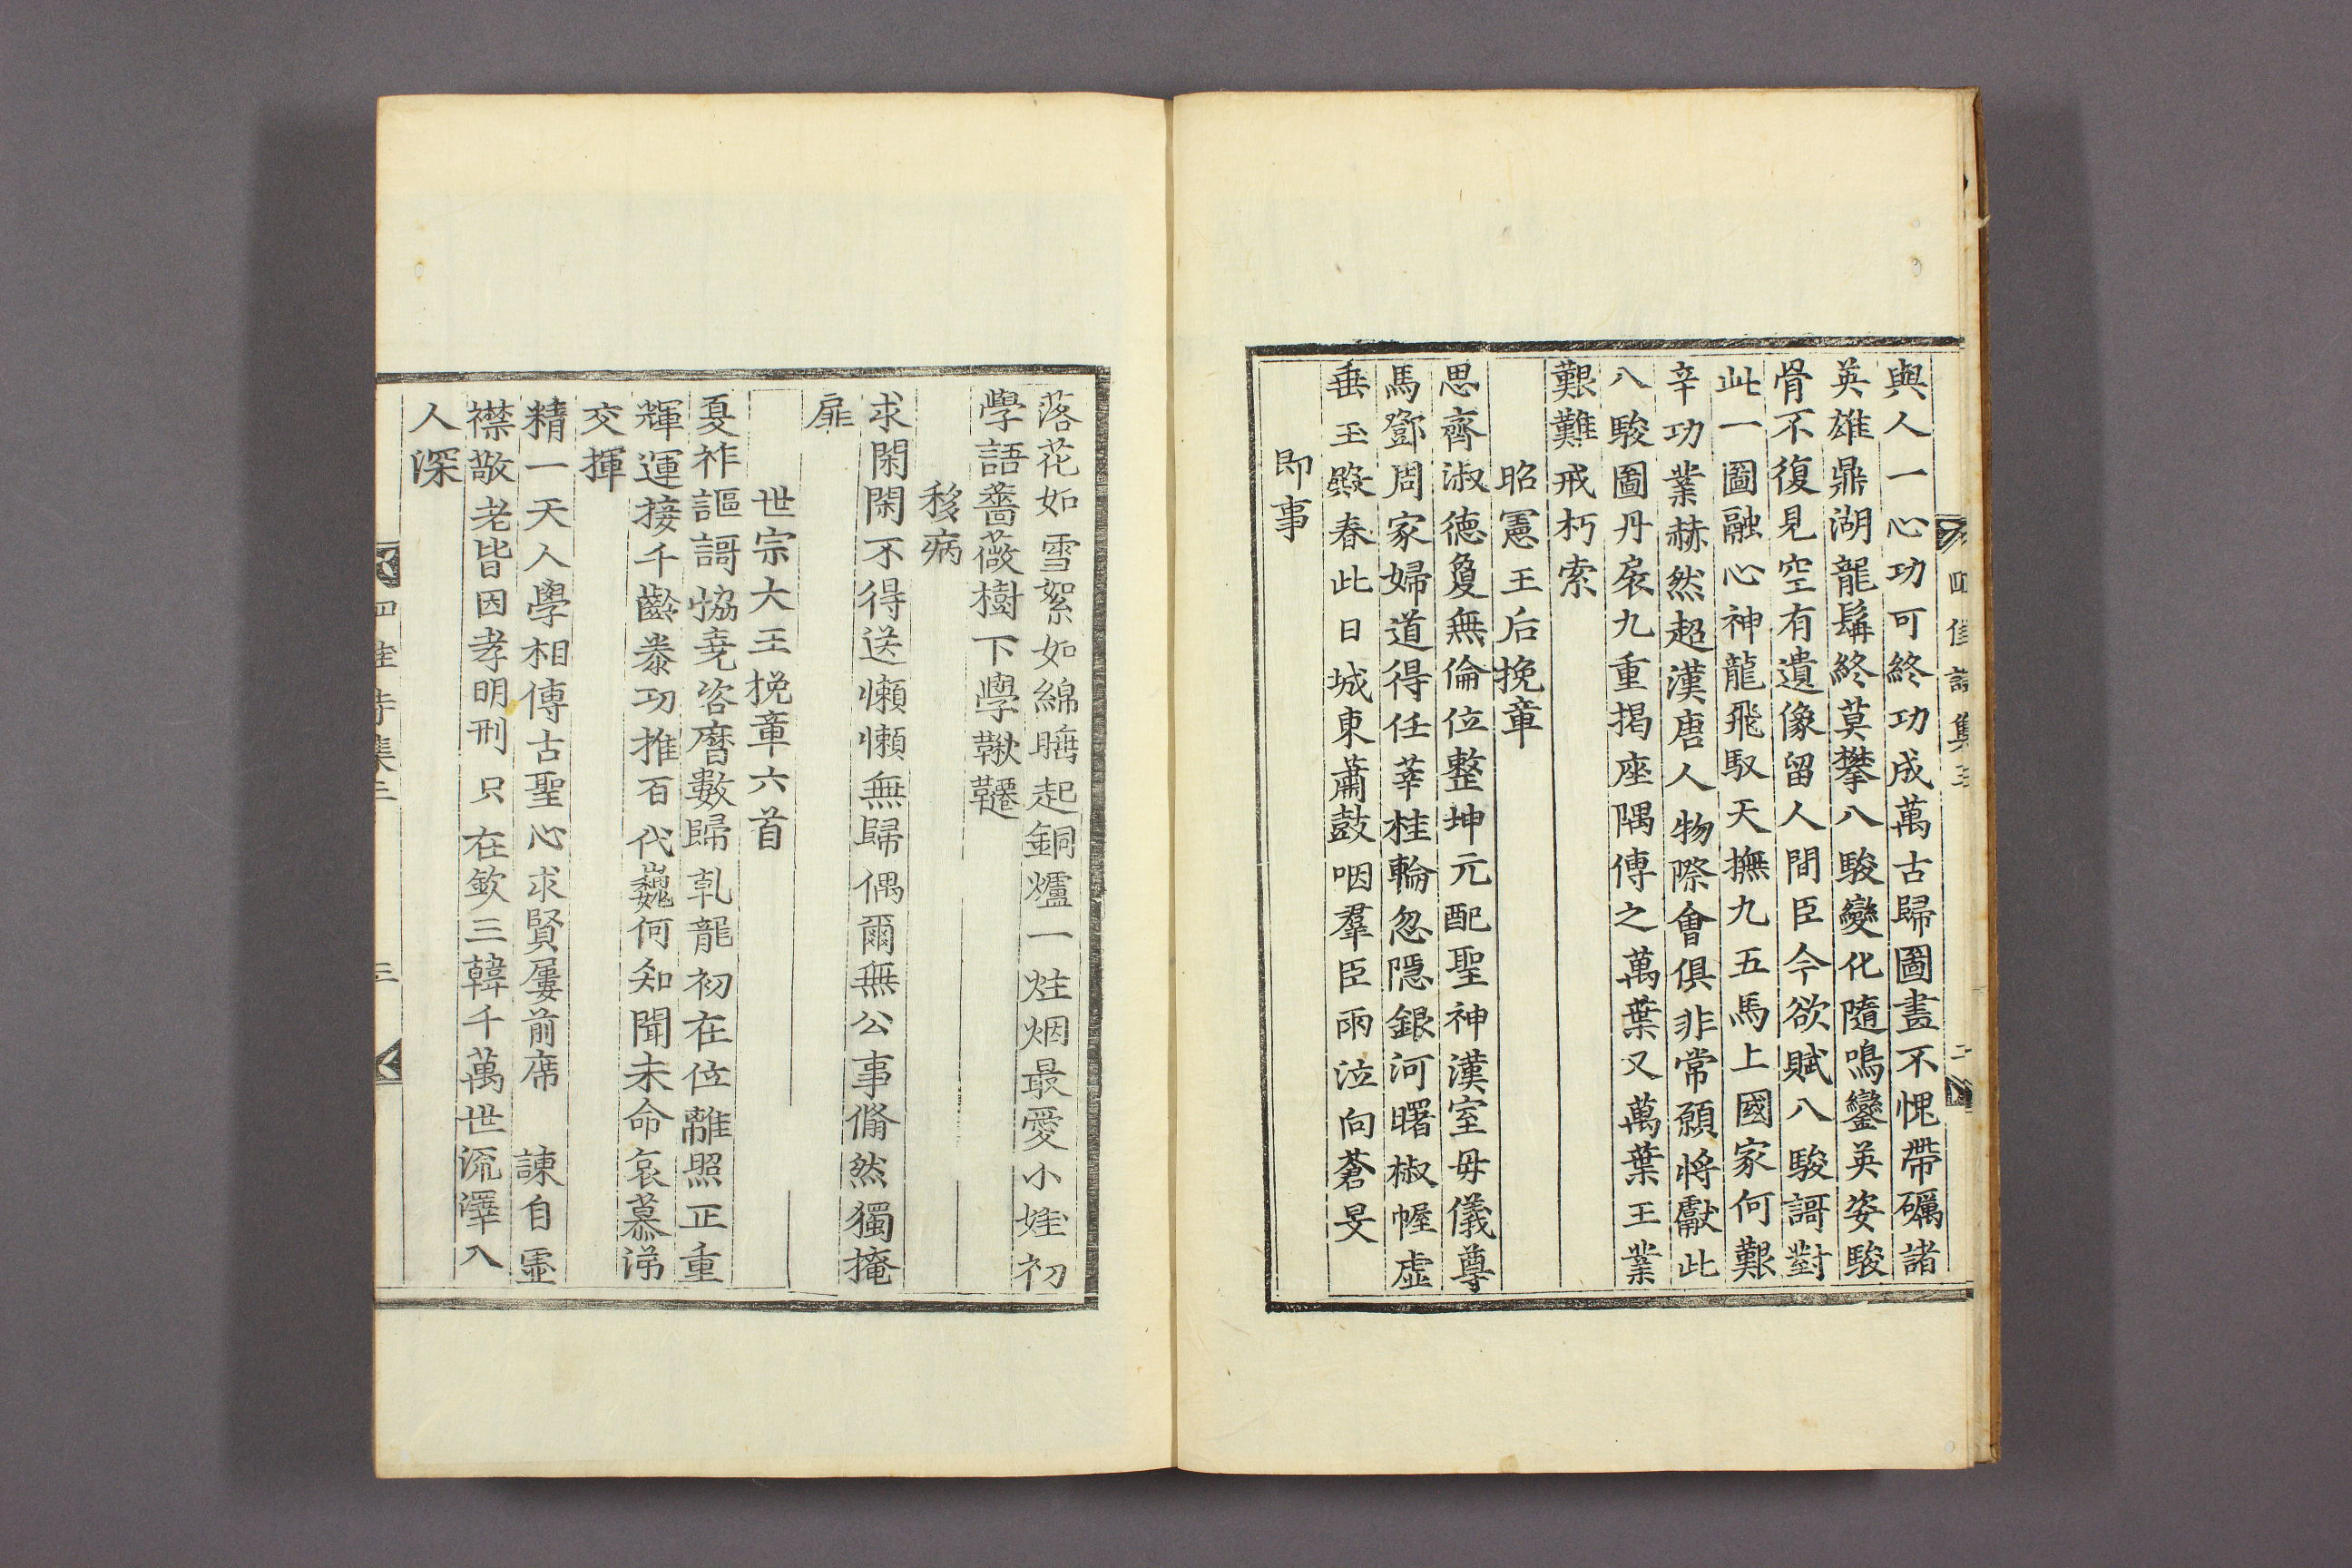 與人一心功可終功成萬古歸圖畫不愧帶礪諸
英雄鼎湖龍髯終莫攀八駿變化隨鳴鑾英姿駿
骨不復見空有遺像留人間臣今欲賦八駿謌對
此一圖融心神龍飛馭天撫九五馬上國家何艱
辛功業赫然超漢唐人物際會俱非常願將獻此
八駿圖丹扆九重揭座隅傳之萬葉又萬葉王業
艱難戒朽索
昭憲王后挽章
思齊淑德夐無倫位整坤元配聖神漢室毋儀尊
馬鄧周家婦道得任莘桂輪忽隱銀河曙椒幄虛
垂玉殿春此日城東蕭鼓咽羣臣兩泣向蒼旻
即事
四佳詩集三
二
落花如雪絮如綿睡起銅爐一炷烟最愛小娃初
學語薔薇樹下學鞦韆
移病
求閑閑不得送懶懶無歸偶爾無公事翛然獨掩
扉
世宗大王挽章六首
夏祚謳謌恊堯咨曆數歸乹龍初在位離照正重
輝運接千齡泰功推百代巍何知聞末命哀慕涕
交揮
精一天人學相傳古聖心求賢屢前席 諫自虛
襟敬老皆因孝明刑只在欽三韓千萬世流澤入
人深
四佳詩集三
三